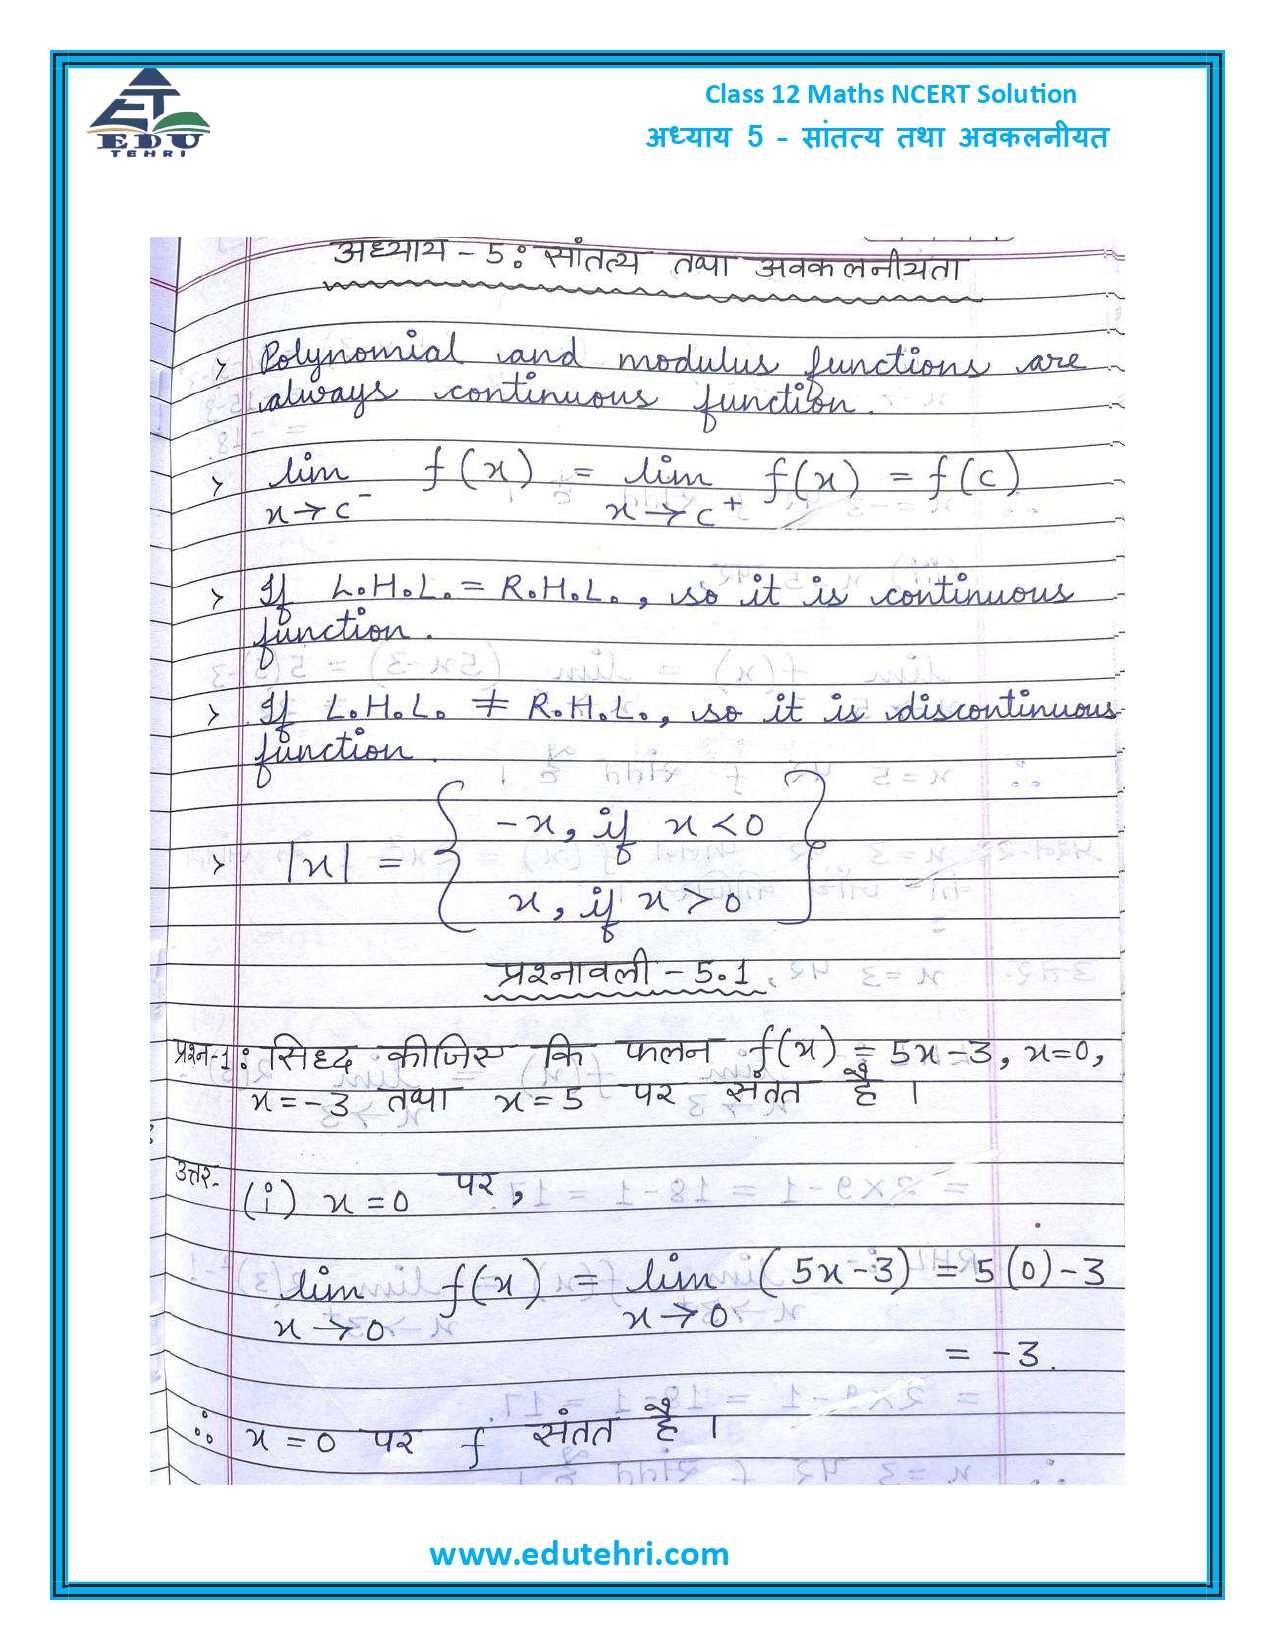 EDU
TEHRI
Class 12 Maths NCERT Solution
अध्याय 5 - सांतत्य तथा अवकलनीयत
अध्याय - 5: सांतत्य तथा अवकलनीयता
> Polynomial and modulus functions are
always continuous function.
> lim f(x) = lim f(x) = f(c)
x→c⁻ x→c⁺
> If L.H.L. = R.H.L., so it is continuous
function.
> If L.H.L. ≠ R.H.L., so it is discontinuous
function.
-x, if x < 0
> |x| =
x, if x > 0
प्रश्नावली - 5.1
प्रश्न-1: सिध्द कीजिए कि फलन f(x) = 5x-3, x=0,
x=-3 तथा x=5 पर संतत है ।
उत्तर- (i) x=0 पर,
lim f(x) = lim (5x-3) = 5(0)-3
x→0 x→0
= -3.
∴ x=0 पर f संतत है ।
www.edutehri.com